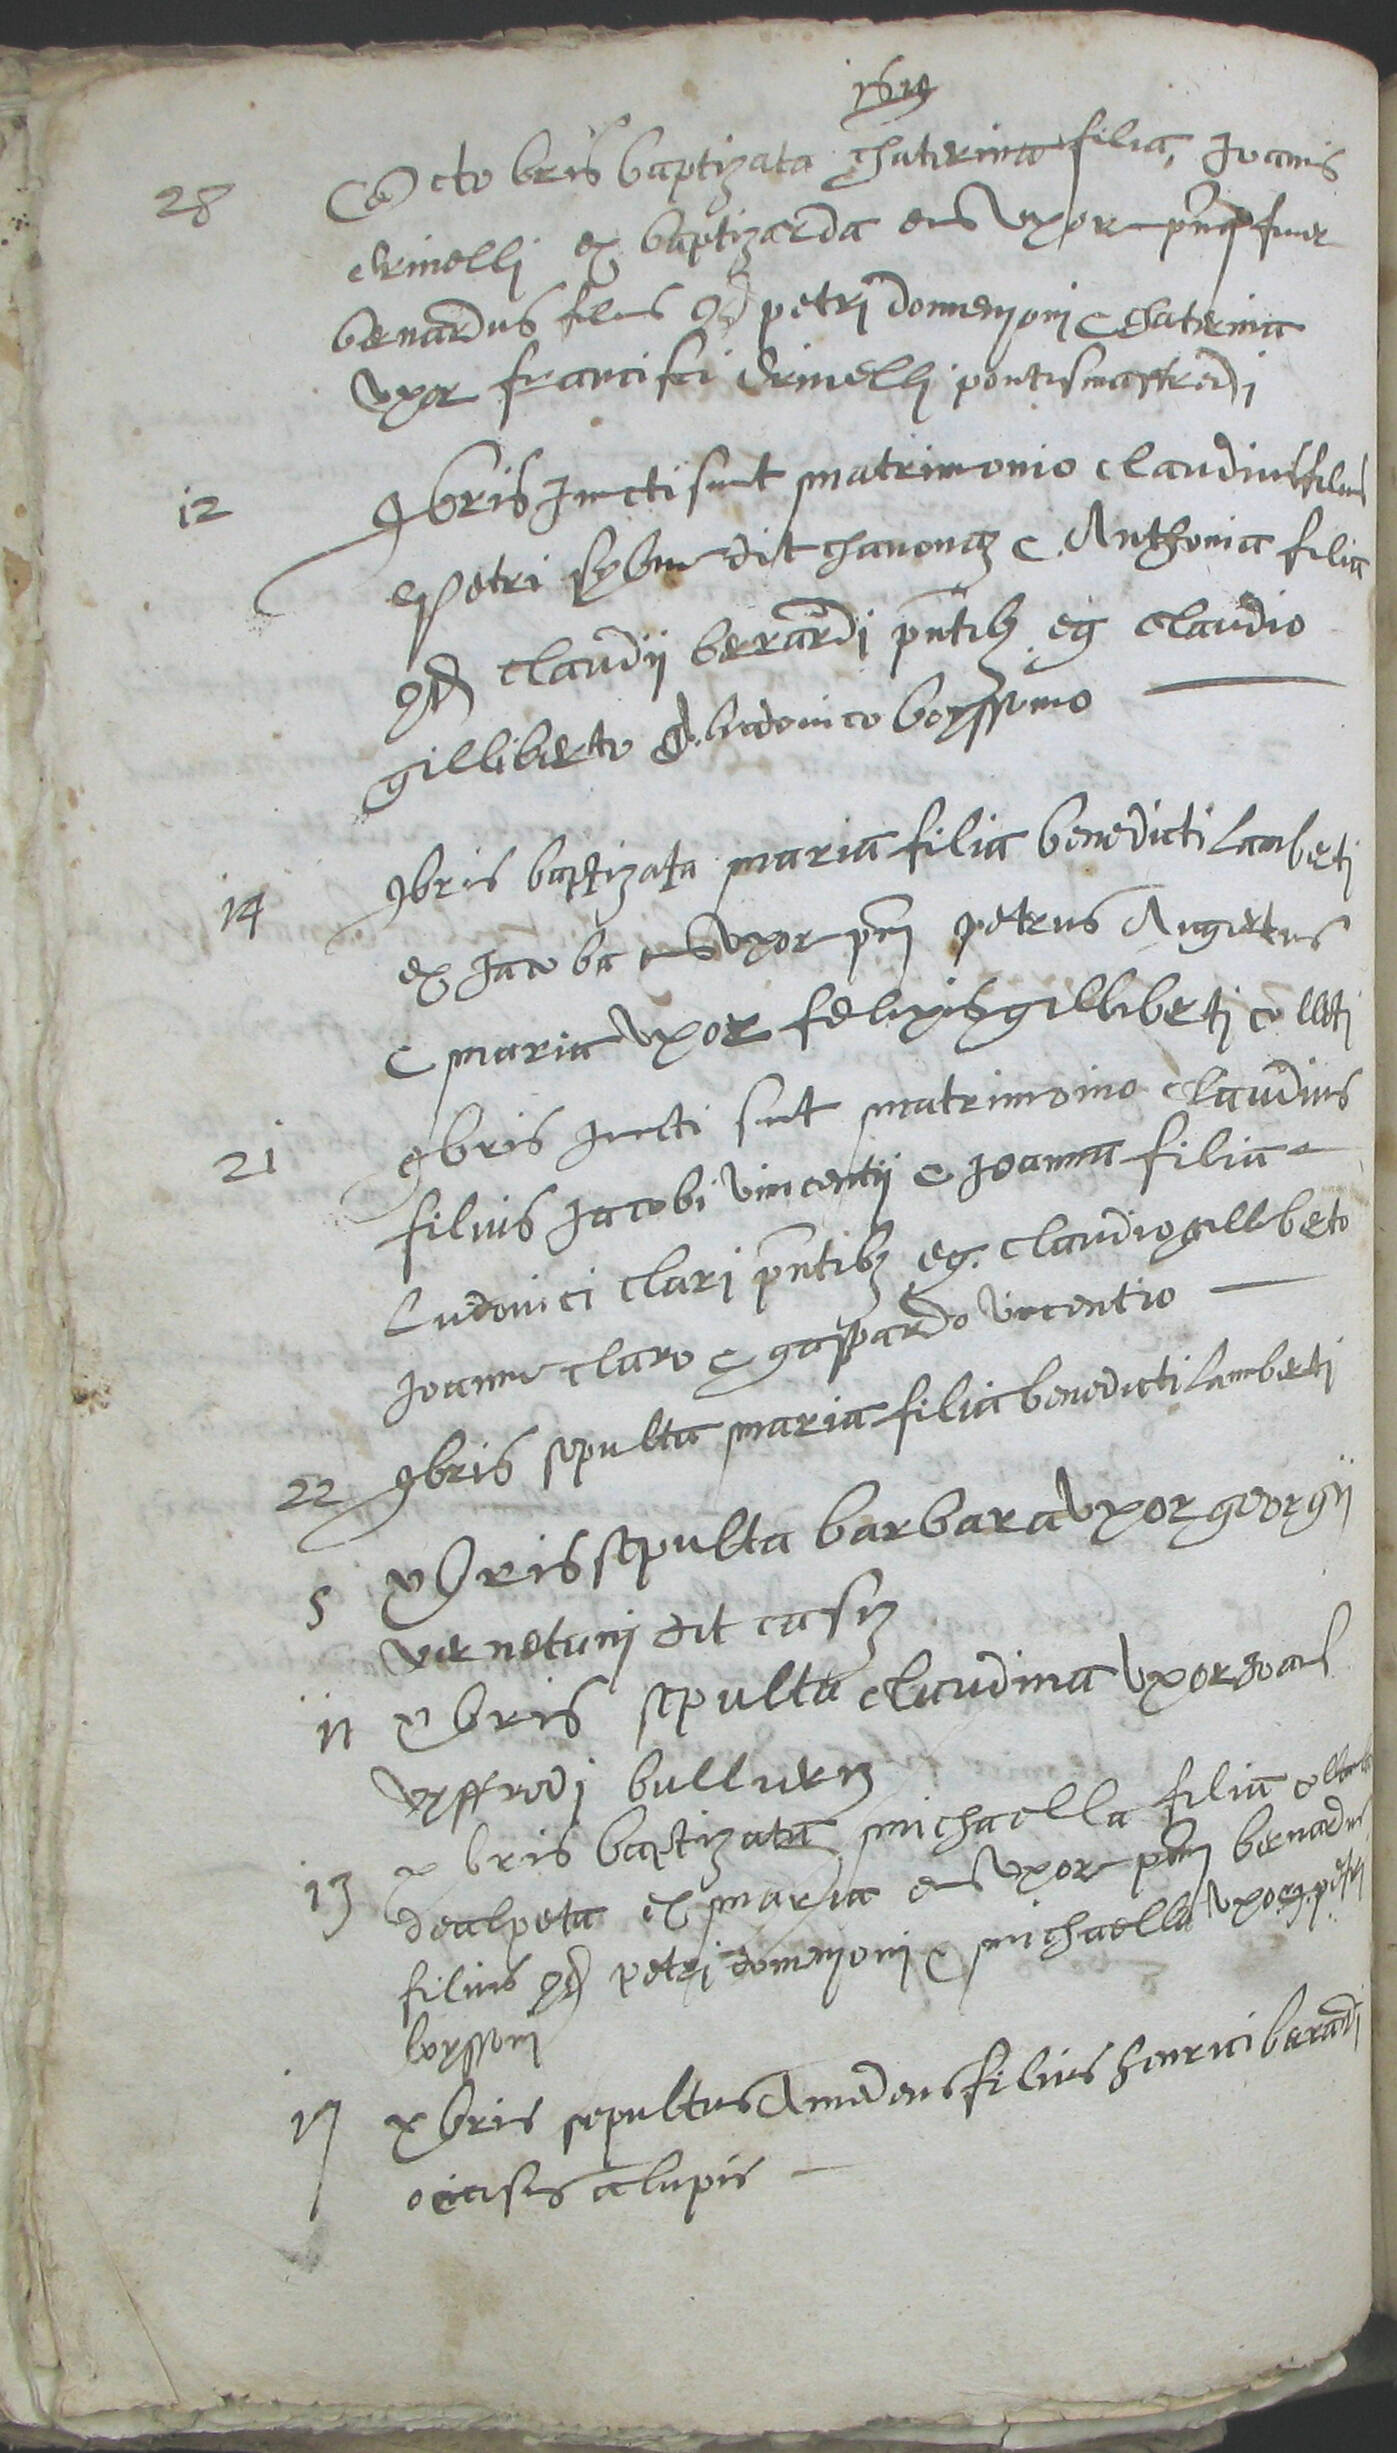 28 Octobris baptizata Chaterina filia Joanis
Drinelli ex baptizarda eius uxore pntq fuer
bernardus filius qd petri domenjoni e Chaterina
uxor francisci Drinelli pontismaffredi
12 9bris Juncti sunt matrimonio claudius filius
Petri dit chavonaz e Anthonia filia
qd claudij berardi pntibz eg claudio
gilliberto ludovico boyssono
14 9bris baptizata maria filia benedicti Lamberti
ex Jacoba eius uxore pn petrus Augerius
e maria uxor felipis gilliberti colleti
21 9bris Juncti sut matrimoino claudius
filius Jacobi vincentij e Joanna filia
Ludovici clari pntibz eg. claudio gilliberto
Joanne claro e gaspardo vincentio
22 9bris sepulta maria filia benedicti Lamberti
5 xbris sepulta barbara uxor georgij
vernetani dit casz
11 xbris sepulta claudina uxor
vyffredi
13 xbris baptizata michaella filia
dealpeta ex maria eius uxore pn bernardus
filius qd petri domenjoni e michaella uxor petri
boyssoni
17 xbris sepultus Amedeus filius henrici berardi
occisus a lupis